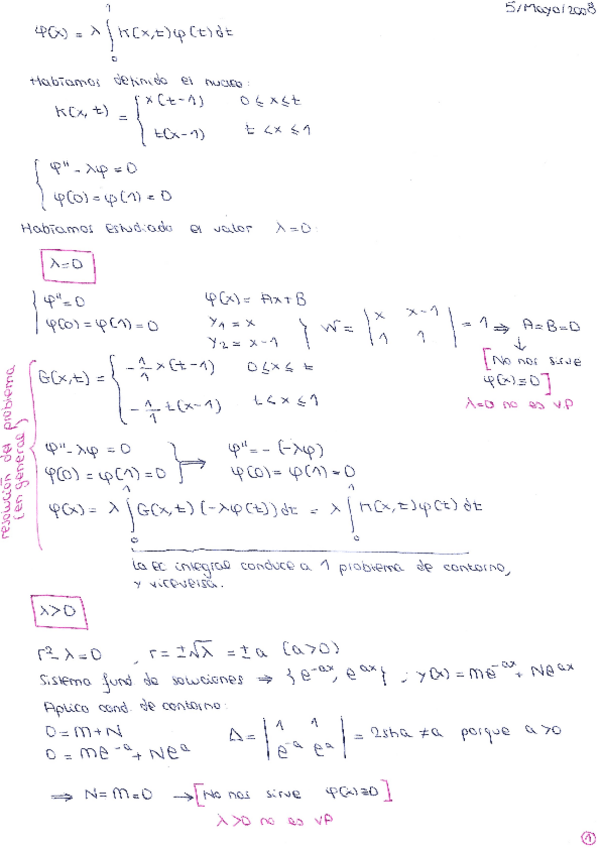 5/Mayo/2008
φ(x) = λ ∫₀¹ K(x,t)φ(t)dt
Habíamos definido el nucleo:
K(x,t) = { x(t-1) 0≤x≤t
t(x-1) t<x≤1
{ φ'' - λφ = 0
φ(0) = φ(1) = 0
Habíamos estudiado el valor λ=0:
λ=0
{ φ''=0 φ(x) = Ax+B
φ(0)=φ(1)=0 y₁ = x y₂ = x-1 } W = | x x-1 | | 1 1 | = 1 ⇒ A=B=0
↓
[No nos sirve
φ(x)≡0]
λ=0 no es VP
resolución del problema
(en general)
G(x,t) = { -1/1 x(t-1) 0≤x≤t
-1/1 t(x-1) t<x≤1
φ''-λφ = 0 } ⇒ φ'' = -(-λφ)
φ(0)=φ(1)=0 φ(0)=φ(1)=0
φ(x) = λ ∫₀¹ G(x,t)(-λφ(t))dt = λ ∫₀¹ K(x,t)φ(t)dt
La ec integral conduce a 1 problema de contorno,
y viceversa.
λ>0
r²-λ=0 , r = ±√λ = ±a (a>0)
Sistema fund de soluciones ⇒ {e^-ax, e^ax} ; y(x) = Me^-ax + Ne^ax
Aplico cond. de contorno:
0 = M+N
0 = Me^-a + Ne^a Δ = | 1 1 | | e^-a e^a | = 2sha ≠ a porque a>0
⇒ N=M=0 → [No nos sirve φ(x)≡0]
λ>0 no es VP
1